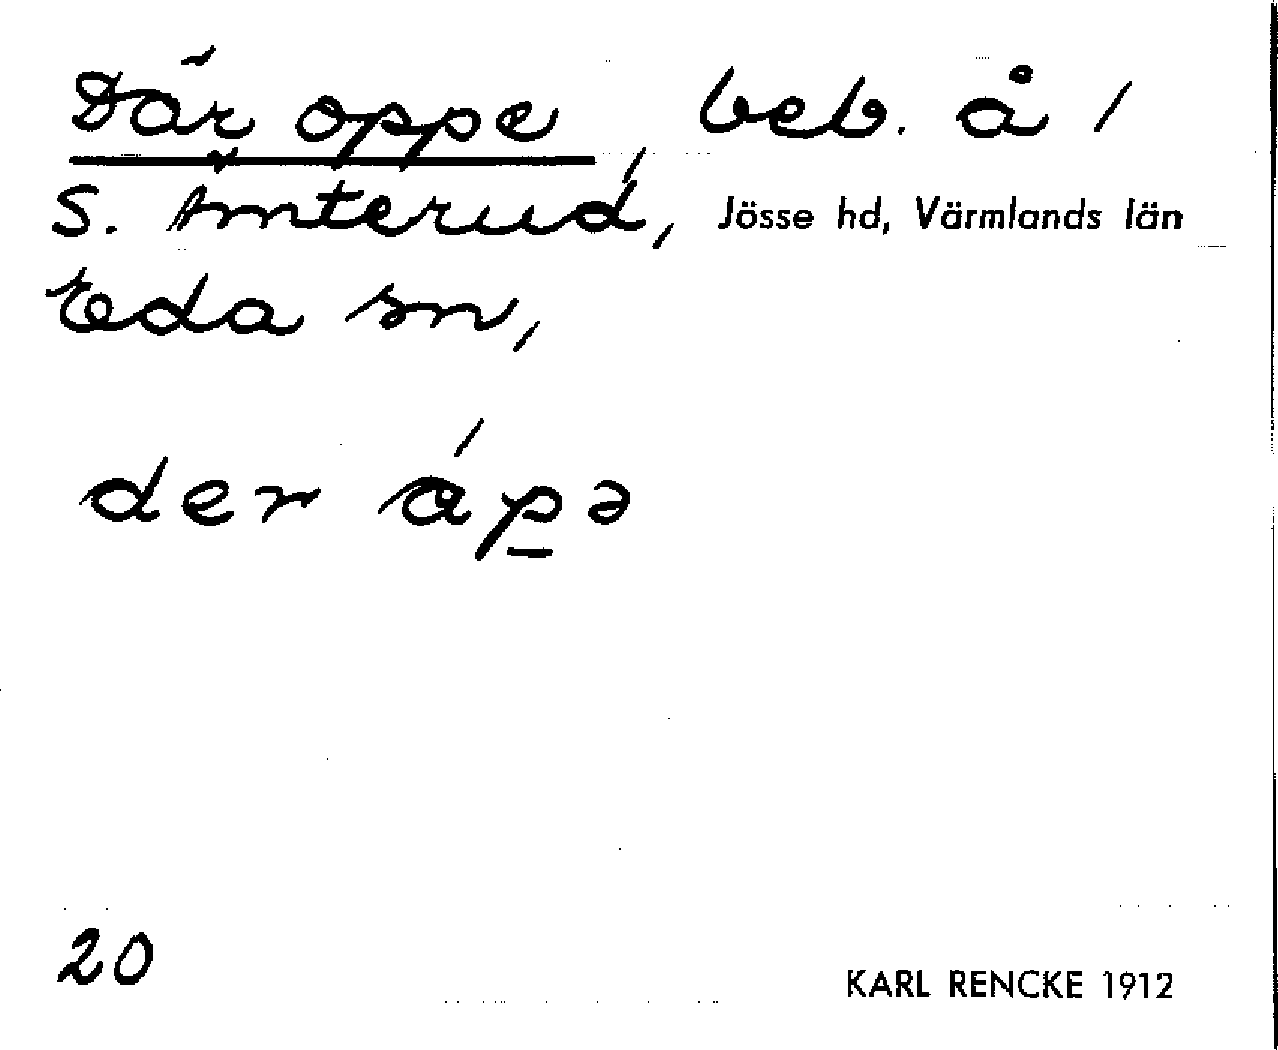 Där oppe, beb. å 1
S. Ämterud, Jösse hd, Värmlands län
Eda sn,
der ápə
20
KARL RENCKE 1912